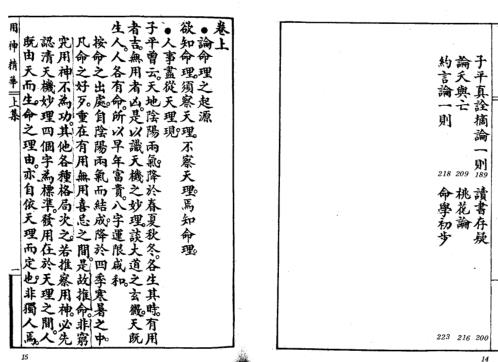 子平真詮摘論一則 189 讀書存疑 200
論夭與亡 209 桃花論 216
約言論一則 218 命學初步 223
14
卷上
●論命理之起源
欲知命理。須察天理。不察天理。焉知命理。
●人事盡從天理現。
子平曾云。天地陰陽兩氣。降於春夏秋冬。各生其時。有用
者吉。無用者凶。是以識天機之妙理。談大道之玄微。天既
生人。人各有命。所以早年富貴。八字運限咸和。
按命之出處。自陰陽兩氣而結成。降於四季寒暑之中。
凡命之好歹。重在有用無用喜忌之間。是故推命。非窮
究用神不為功。其他各種格局次之。若推察用神。必先
認清天機妙理四個字為標準。發用在於天理之間。人
既由天而生。命之理由。亦自依天理而定也。非獨人焉。
用神精華 上集 一
15